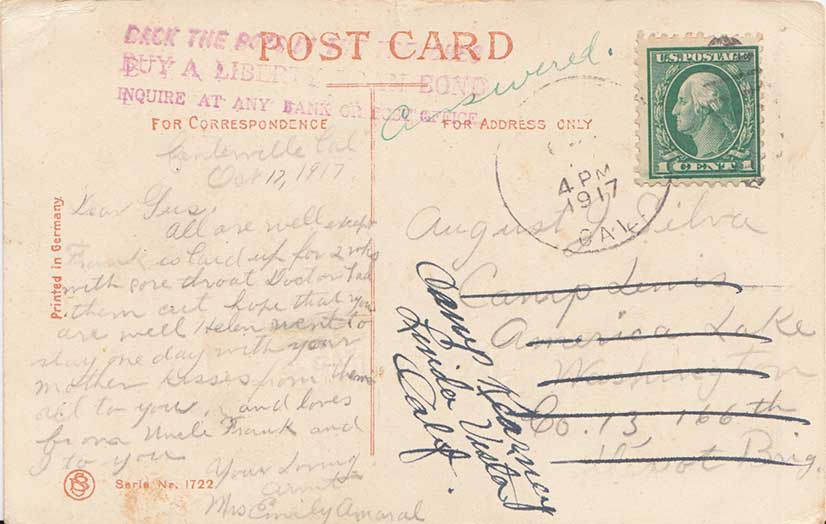 BACK THE BOYS
POST CARD
BUY A LIBERTY LOAN BOND
INQUIRE AT ANY BANK OR POST OFFICE
Answered.
FOR CORRESPONDENCE
FOR ADDRESS ONLY
U.S. POSTAGE
1 CENT 1
4 PM
1917
CAL.
Centerville Cal
Oct 17, 1917.
Dear Gus,
All are well except
Frank is laid up for 2 wks
with sore throat Doctor had
them cut hope that you
are well Helen went to
stay one day with your
mother kisses from them
all to you, and loves
from Uncle Frank and
I to you
Your Loving
aunt
Mrs Emily Amaral
Printed in Germany
Serie Nr. 1722
August J. Silva
Camp Lewis
America Lake
Washington
Co. 13, 166th
Depot Brig.
Camp Kearney
Linda Vista
Calf.